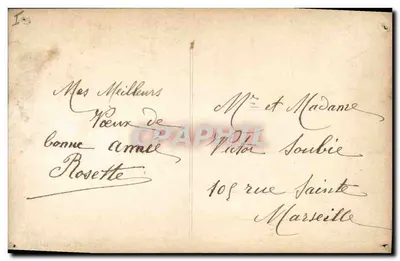 Mes Meilleurs
Vœux de
bonne année
Rosette
Mr et Madame
Victor Soubie
105 rue Sainte
Marseille